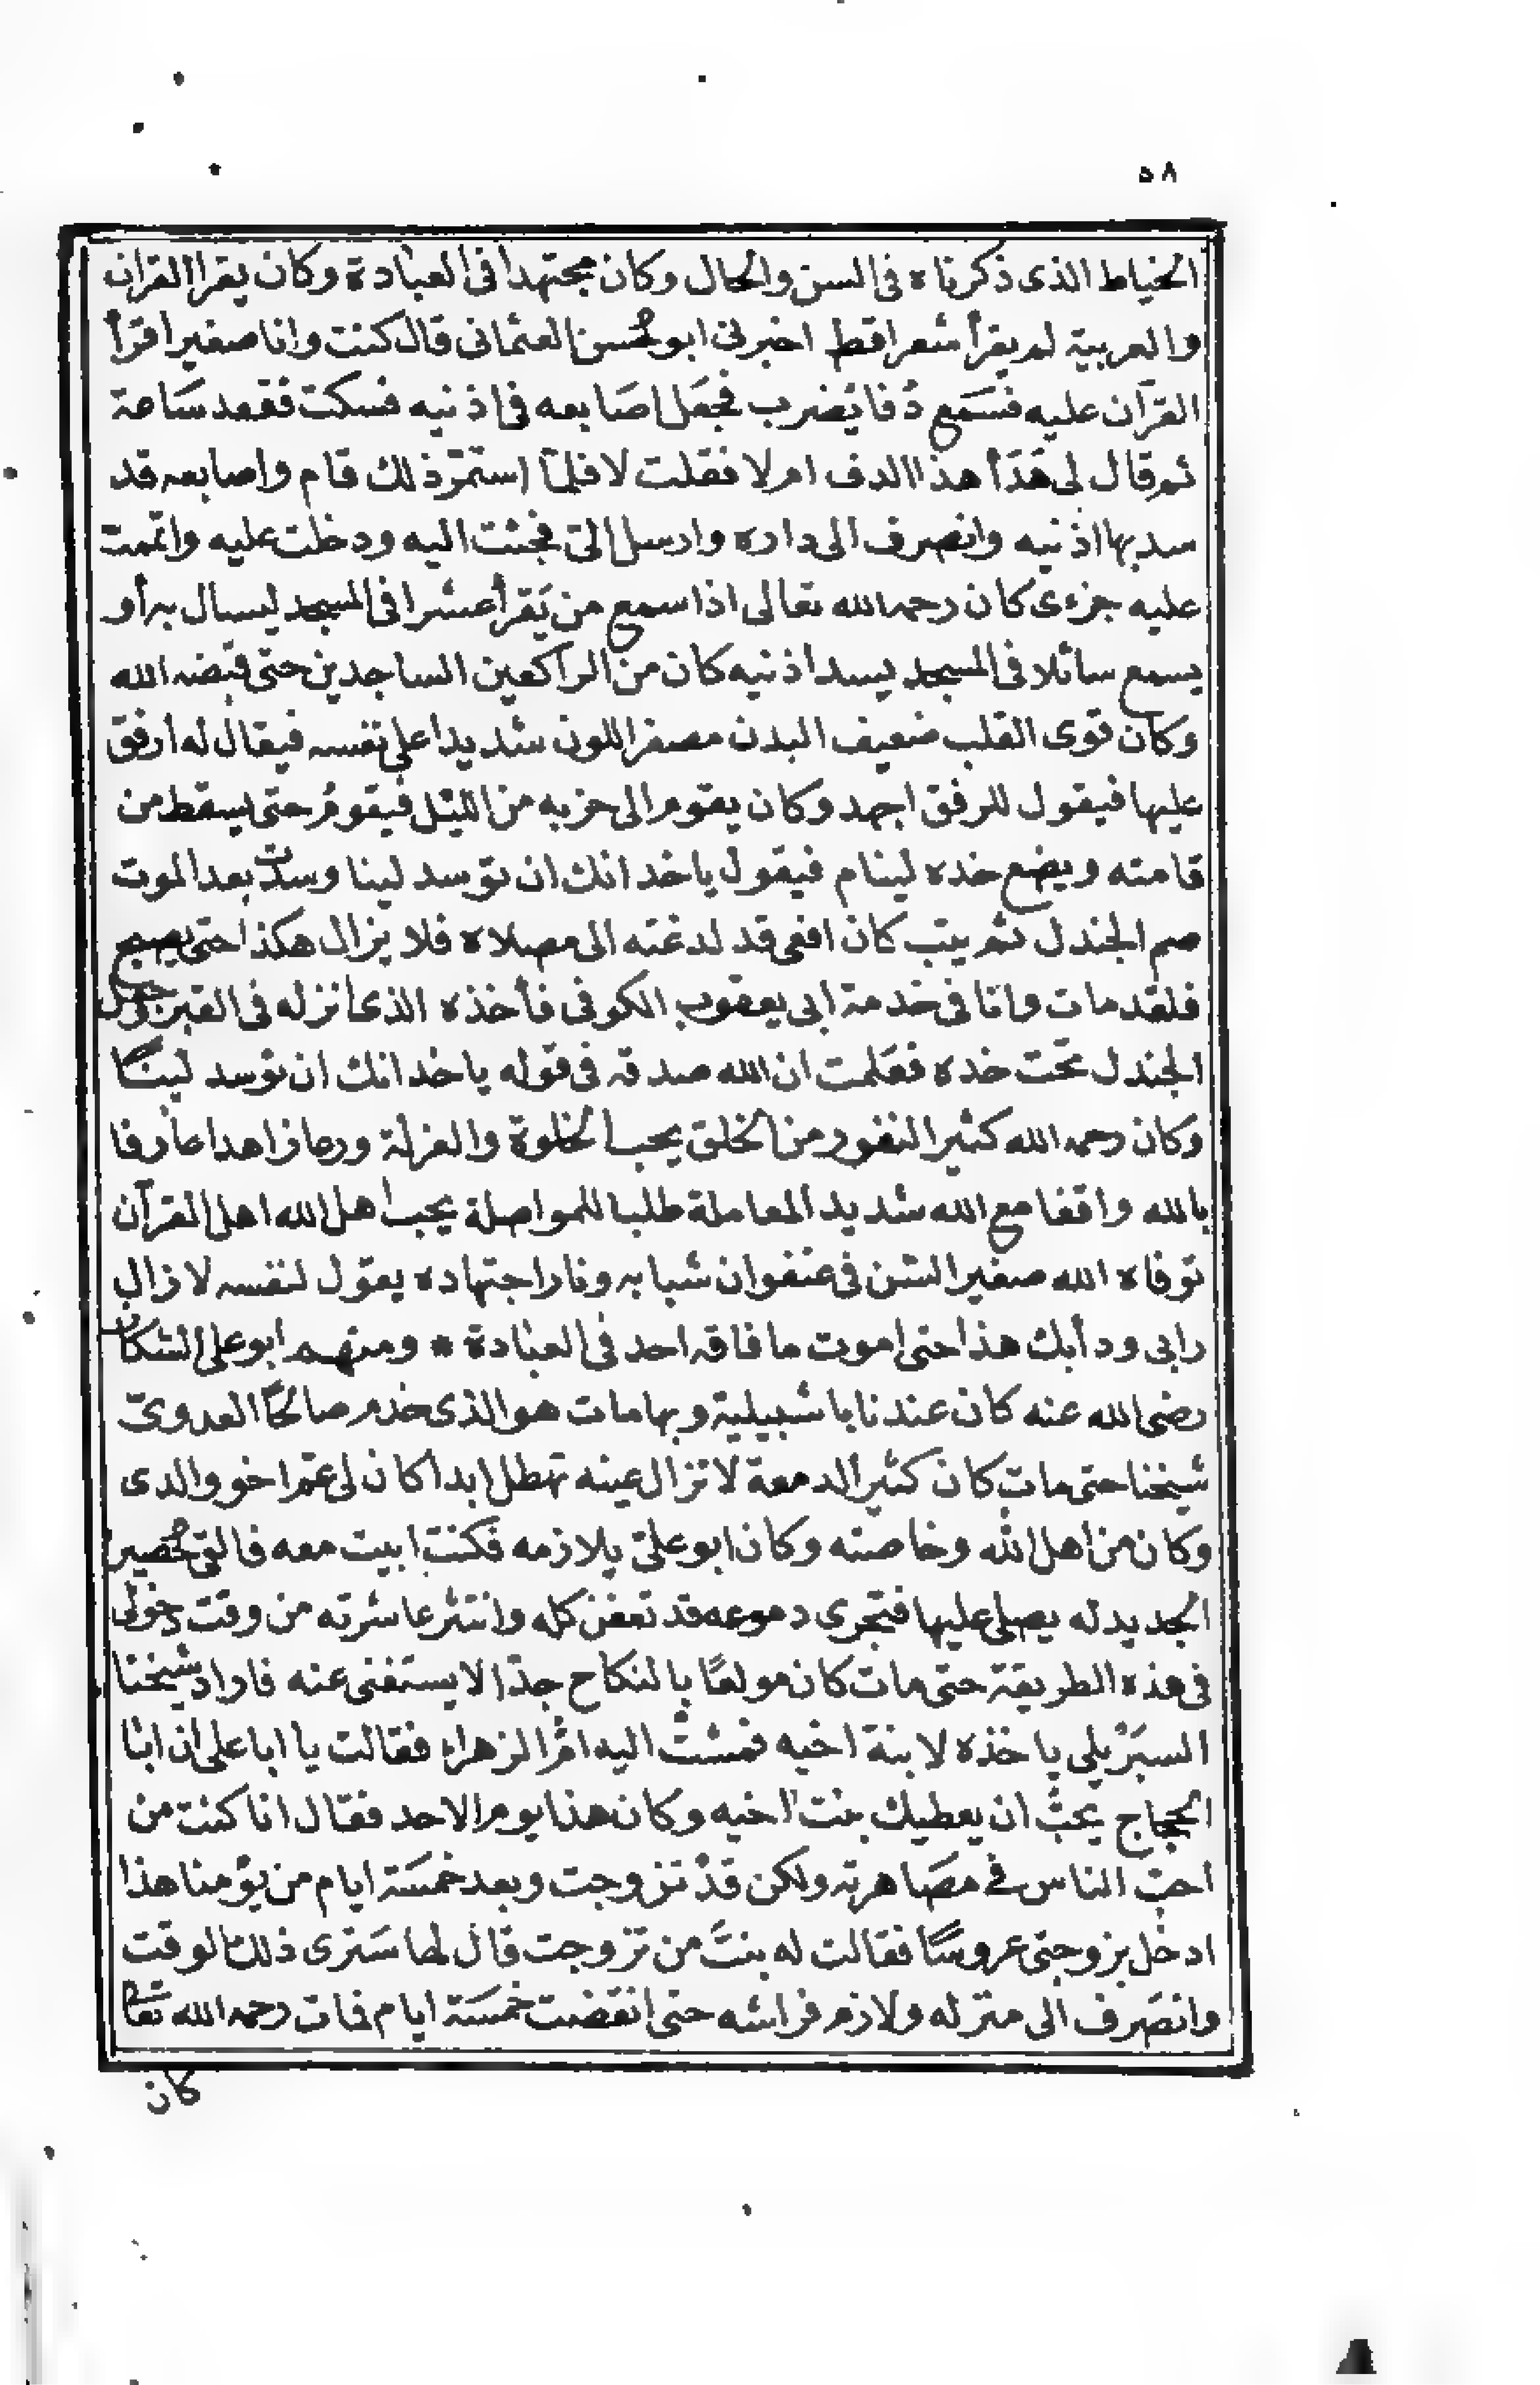 ٥٨
الخياط الذى ذكرناه فى السن والحال وكان مجتهدا فى العبادة وكان يقرأ القران
والعربية لم يقرأ شعرا قط اخبرنى ابو حُسن العثمانى قال كنت وانا صغيرا اقرأ
القرآن عليه فسَمع دُفا يُضرب فجعَل اصَابعه فى اذنيه فسكت فقعد سَاعة
ثم قال لى هَدَأ هذا الدف ام لا فقلت لا فلمّا استمرّ ذلك قام واصابعه قد
سد بها اذنيه وانصرف الى داره وارسل الىّ فجئت اليه ودخلت عليه واتممت
عليه جزءى كان رحمه الله تعالى اذا سمع من يَقرأ عشرا فى المسجد ليسال به أو
يسمع سائلا فى المسجد يسد اذنيه كان من الراكعين الساجدين حتى قبضه الله
وكان قوى القلب ضعيف البدن مصفر اللون شديدا على نفسه فيقال له ارفق
عليها فيقول للرفق اجهد وكان يقوم الى حزبه من الليل فيقومُ حتى يسقط من
قامته ويضع خده لينام فيقول يا خد انك ان توسد لينا وسدت بعد الموت
صم الجندل ثم يثب كان افعى قد لدغته الى مصلاه فلا يزال هكذا حتى يصبح
فلقد مات وانا فى خدمة ابى يعقوب الكوفى فأخذه الذى أنزله فى القبر وجعل
الجندل تحت خده فعَلمت ان الله صدقه فى قوله يا خد انك ان توسد لينًا
وكان رحمه الله كثير النفور من الخلق يحب الخلوة والعزلة ورعا زاهدا عارفا
بالله واقفا مع الله شديد المعاملة طلبا للمواصلة يحب اهل الله اهل القرآن
توفاه الله صغير السّن فى عنفوان شبابه ونار اجتهاده يقول لنفسه لا زال
رابى ودأبك هذا حتى اموت ما فاقه احد فى العبادة * ومنهم ابو على الشكان
رضى الله عنه كان عندنا باشبيلية وبها مات هو الذى خدم صالحًا العدوىّ
شيخنا حتى مات كان كثير الدمعة لا تزال عينه تهطل ابدا كان لى عمّ اخو والدى
وكان من اهل الله وخاصته وكان ابو علىّ يلازمه فكنت ابيت معه فالقى حُصير
الجديد له يصلى عليها فتجرى دموعه قد تعفن كله وانتثر عاشرته من وقت دخولى
فى هذه الطريقة حتى مات كان مولعًا بالنكاح جدّا لا يستغنى عنه فاراد شيخنا
السبَرْبلى ياخذه لابنة اخيه فمشت اليه امّ الزهراء فقالت يا ابا على ان ابا
الحجاج يحبّ ان يعطيك بنت اخيه وكان هذا يوم الاحد فقال انا كنت من
احبّ الناس فى مصَاهرته ولكن قدْ تزوجت وبعد خمسَة ايام من يوْمنا هذا
ادخل بزوجتى عروسًا فقالت له بنتُ من تزوجت قال لها سَترى ذلك الوقت
وانصَرف الى منزله ولازم فراشه حتى انقضت خمسَة ايام فمات رحمه الله تعالى
كان